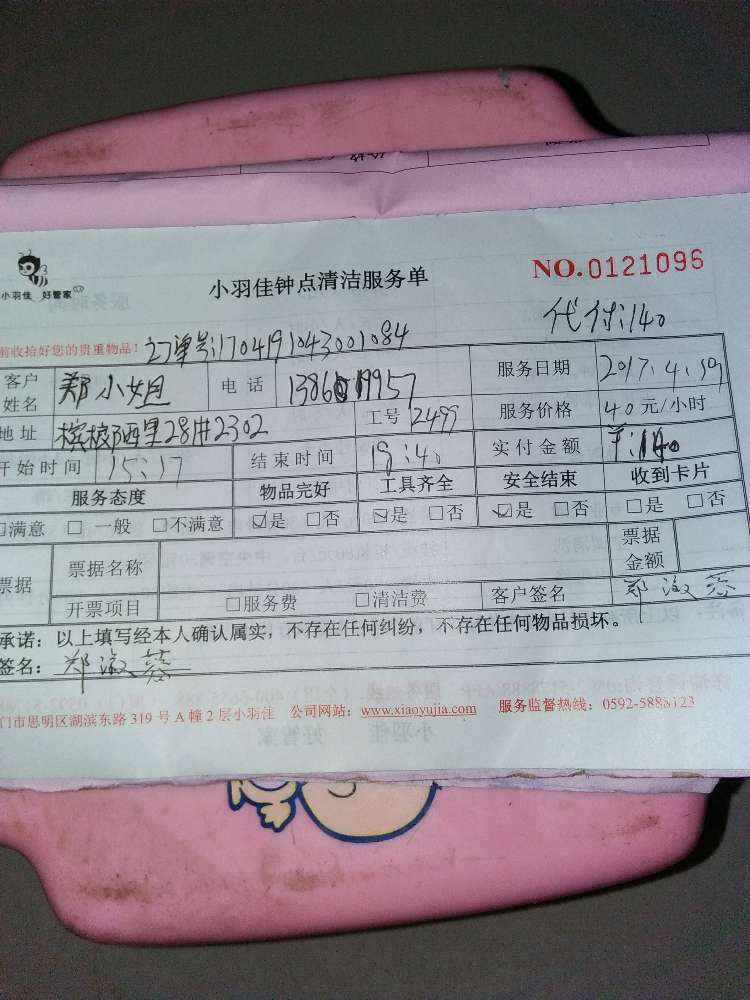 小羽佳 好管家
小羽佳钟点清洁服务单
NO.0121096
代付:140
前收拾好您的贵重物品!
订单号:1704191043001084
客户姓名 郑小姐 电话 服务日期 2017.4.19
地址 槟榔西里28#2302 工号 2499 服务价格 40元/小时
开始时间 15:17 结束时间 19:40 实付金额
服务态度 物品完好 工具齐全 安全结束 收到卡片
□满意 □一般 □不满意 ☑是 □否 ☑是 □否 ☑是 □否 □是 □否
票据 票据名称 票据金额
开票项目 □服务费 □清洁费 客户签名 郑淑蓉
承诺:以上填写经本人确认属实,不存在任何纠纷,不存在任何物品损坏。
签名: 郑淑蓉
门市思明区湖滨东路319号A幢2层小羽佳 公司网站:www.xiaoyujia.com 服务监督热线:0592-5888123